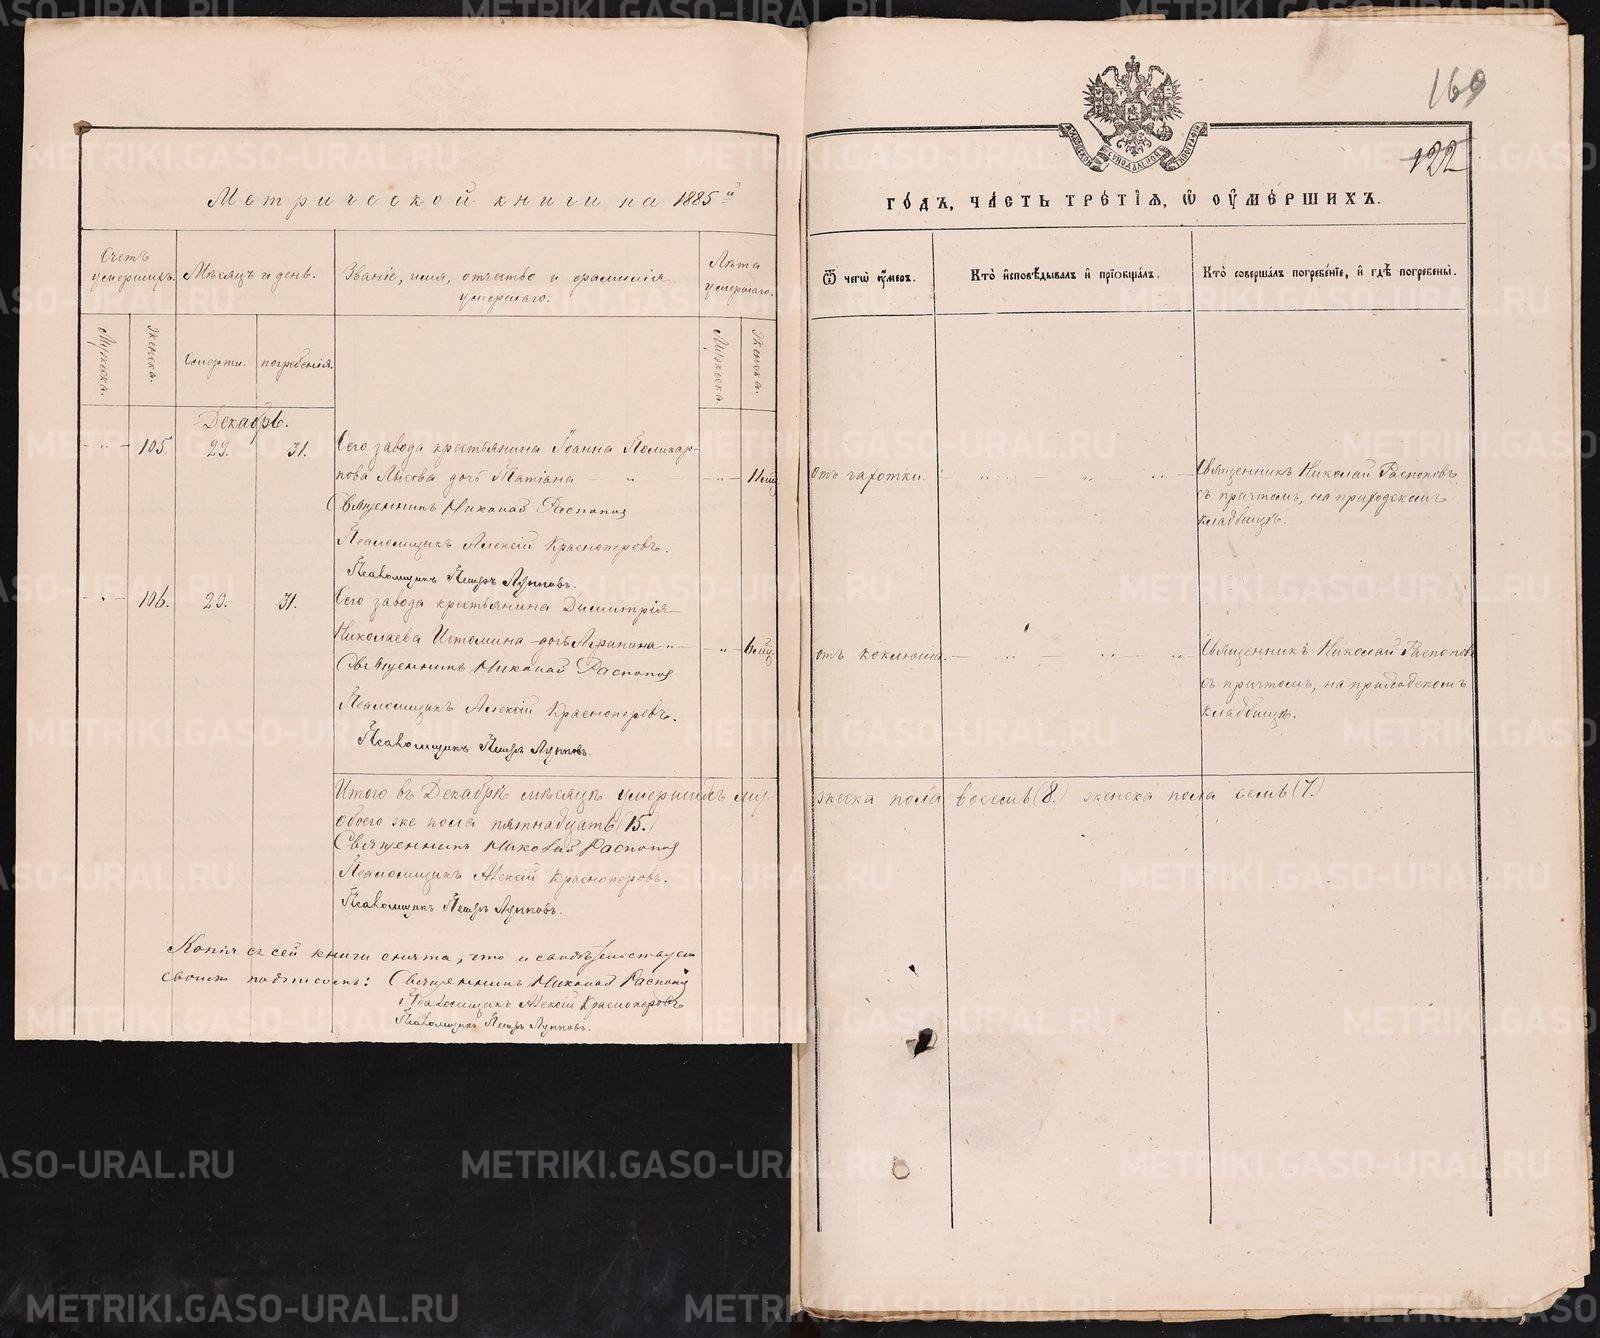 160
122
Метрической книги на 1885й
годъ, часть третія, ѿ оумершихъ.
Счетъ умершихъ.
Мѣсяцъ и день.
Званіе, имя, отчество и фамилія умершаго.
Лѣта умершаго.
Ѿ чегѡ оумеръ.
Кто исповѣдывалъ и пріобщалъ.
Кто совершалъ погребеніе, и гдѣ погребены.
Мужеска.
Женска.
Смерти.
погребенія.
Мужеска.
Женска.
Декабрь.
105. 29. 31. Сего завода крестьянина Іоанна Поликар-
пова Лысова дочь Татіана 11 мц.
отъ чахотки.
Священникъ Николай Распоповъ
съ причтомъ, на приходскомъ
кладбищѣ.
Священникъ Николай Распопов
Псаломщикъ Алексій Красноперовъ.
Псаломщикъ Петръ Луппов.
106. 29. 31. Сего завода крестьянина Димитрія
Николаева Истомина дочь Агрипина 6 мц.
отъ коклюша.
Священникъ Николай Распоповъ
съ причтомъ, на приходскомъ
кладбищѣ.
Священникъ Николай Распопов
Псаломщикъ Алексій Красноперовъ.
Псаломщикъ Петръ Лупповъ.
Итого въ Декабрѣ мѣсяцѣ умершихъ му-
жеска пола восемь (8.) женска пола семь (7.)
обоего же пола пятнадцать (15.)
Священникъ Николай Распопов
Псаломщикъ Алексій Красноперовъ.
Псаломщикъ Петръ Лупповъ.
Копія съ сей книги снята, что и свидѣтельствуем
своимъ подписомъ: Священникъ Николай Распопов
Псаломщикъ Алексій Красноперовъ
Псаломщикъ Петръ Лупповъ.
METRIKI.GASO-URAL.RU